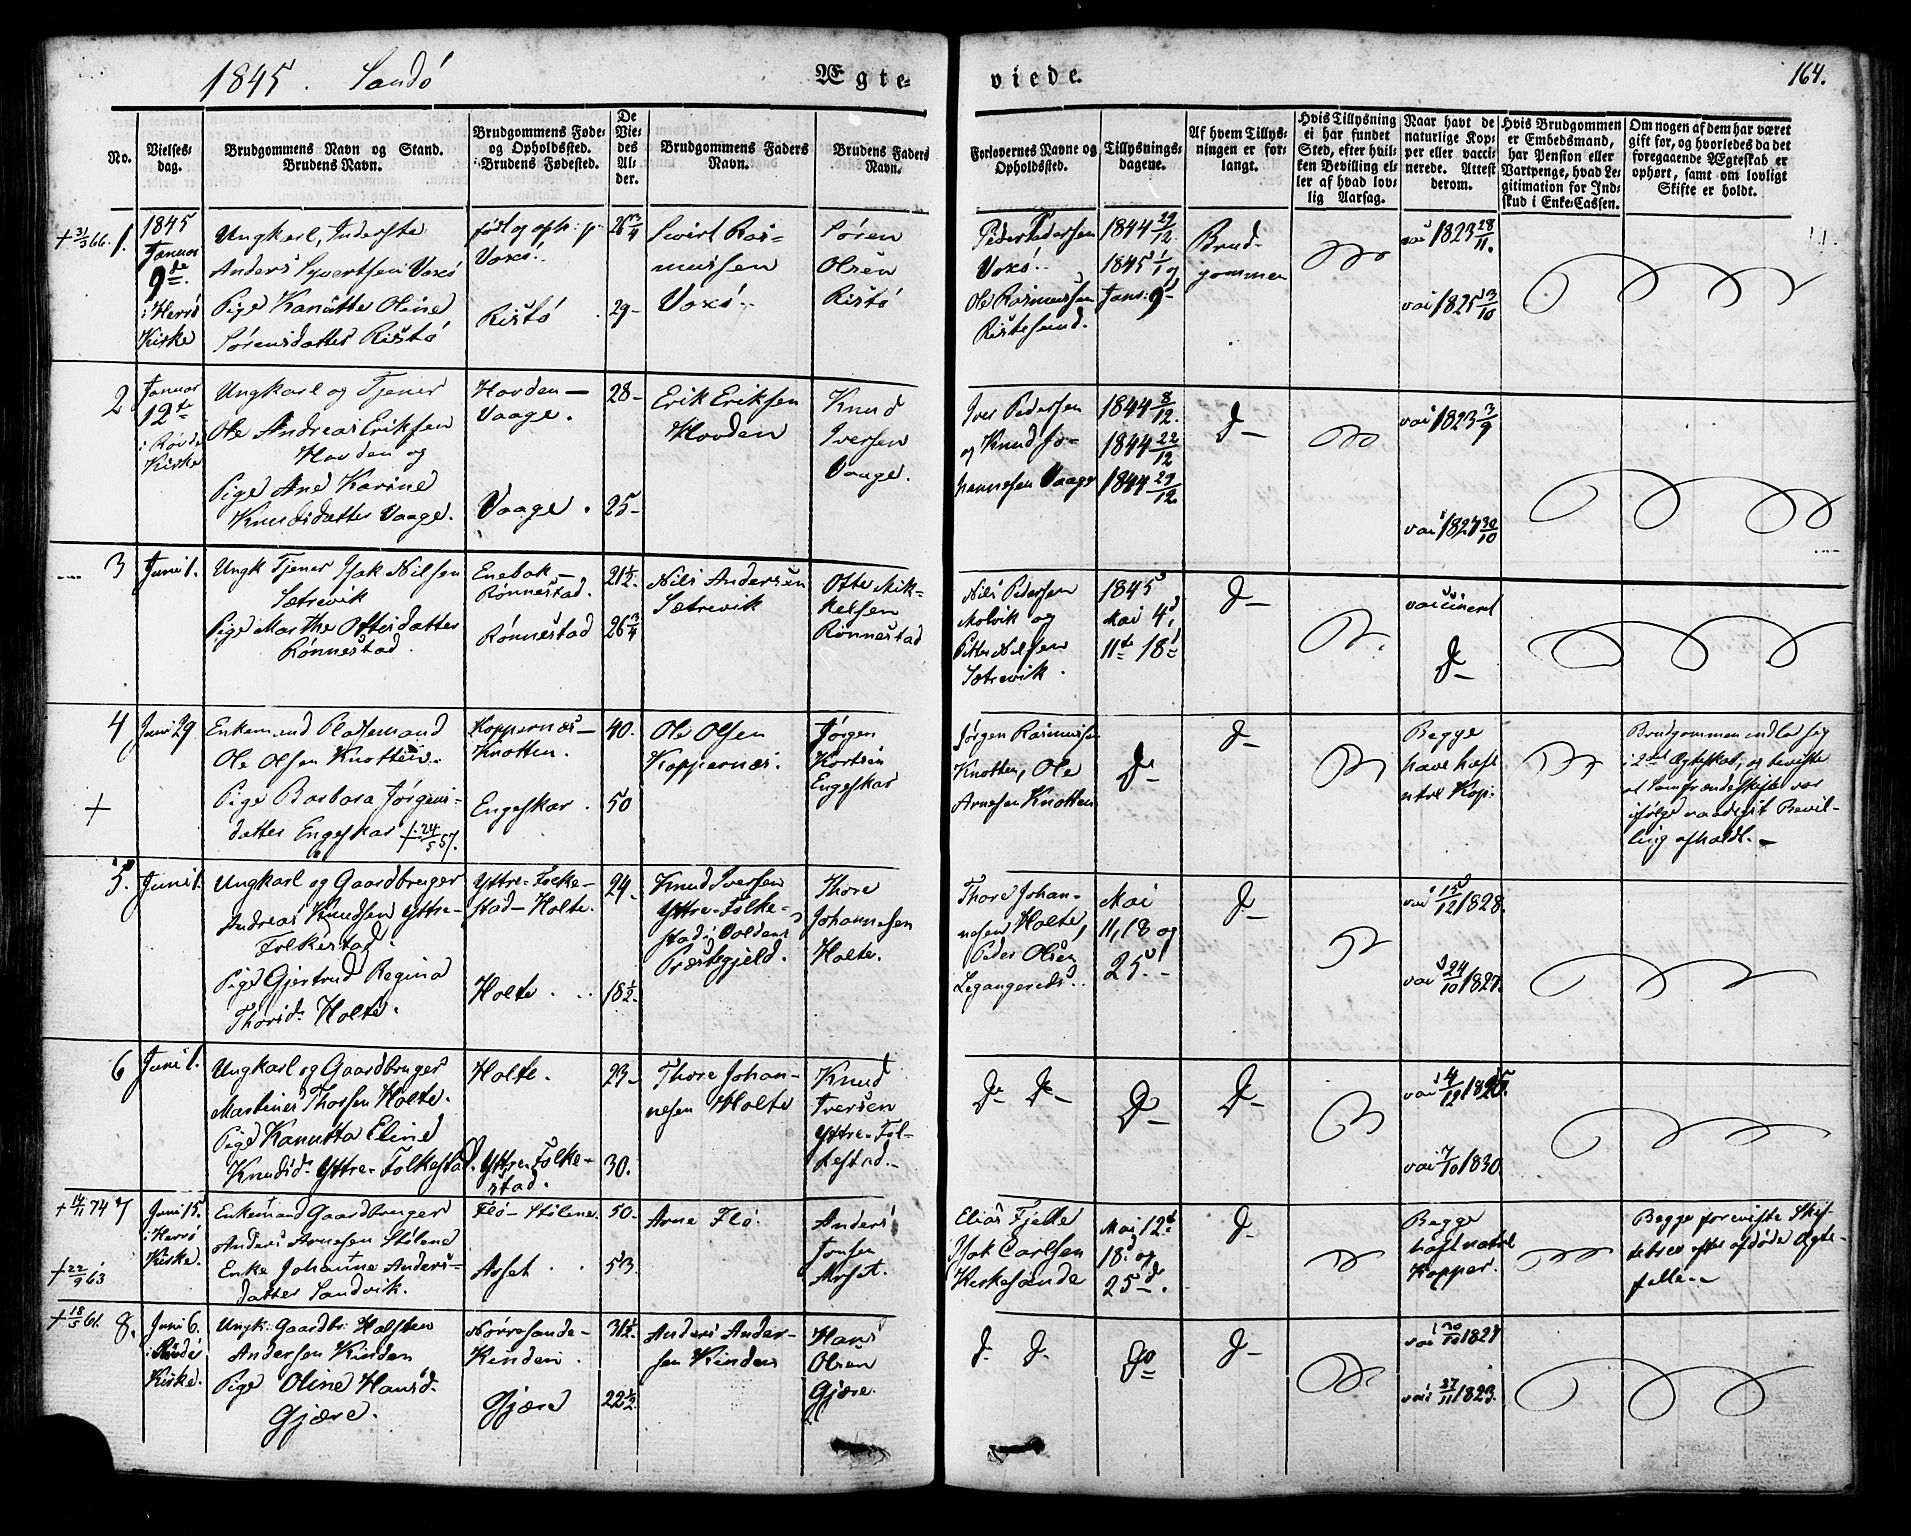 1845. Sandö
Ægte-
viede.
164.
No.
Vielses-
dag.
Brudgommens Navn og Stand.
Brudens Navn.
Brudgommens Føde-
og Opholdssted.
Brudens Fødested.
De
Vie-
des
Al-
der.
Brudgommens Faders
Navn.
Brudens Faders
Navn.
Forlovernes Navne og
Opholdssted.
Tillysnings-
dagene.
Af hvem Tillys-
ningen er for-
langt.
Hvis Tillysning
ei har fundet
Sted, efter hvil-
ken Bevilling el-
ler af hvad lov-
lig Aarsag.
Naar havt de
naturlige Kop-
per eller vacci-
nerede. Attest
derom.
Hvis Brudgommen
er Embedsmand,
har Pension eller
Vartpenge, hvad Le-
gitimation for Ind-
skud i Enke-Cassen.
Om nogen af dem har været
gift før, og hvorledes da det
foregaaende Ægteskab er
ophørt, samt om lovligt
Skifte er holdt.
+ 31/3 66. 1.
1845
Januar
9de
i Herrö
Kirke
Ungkarl, Inderste
Anders Syvertsen Voxö
Pige Kanutte Oline
Sörensdatter Ristö
født og oph: p.
Voxö..
Ristö
26 3/4
29-
Sivert Ras-
mussen
Voxö..
Sören
Olsen
Ristö
Peder Pedersen
Voxö..
Ole Rasmussen
Ristesund.
1844 29/12.
1845 1/1 og
Janr: 9d
Brud-
gommen
vac 1823 28/11.
vac 1825 13/10
2
Januar
12te
i Rövde
Kirke
Ungkarl og Tjener
Ole Andreas Eriksen
Hovden og
Pige Ane Karine
Knudsdatter Vaage.
Hovden -
Vaage.
Vaage.
28-
25-
Erik Eriksen
Hovden
Knud
Iversen
Vaage.
Iver Pedersen
og Knud Jo-
hannesen Vaage
1844 8/12.
1844 22/12
1844 29/12.
D-
vac 1823 3/9
vac 1827 30/10
3
Juni 1.
Ungk Tjener Isak Nilsen
Sætrevik
Pige Marthe Ottesdatter
Rønnestad.
Enebak -
Rønnestad.
Rønnestad
21 1/2.
26 3/4
Nils Andersen
Sætrevik
Otte Mik-
kelsen
Rønnestad
Nils Pedersen
Molvik og
Petter Nilsen
Sætrevik.
1845
Mai 4d,
11te 18d
D-
vaccineret
D-
4
Juni 29
Enkemand Pladsemand
Ole Olsen Knotten..
Pige Barbara Jørgens-
datter Engeskar + 24/5 57.
+
Koppernæs -
Knotten.
Engeskar.
40.
50
Ole Olsen
Koppernæs.
Jørgen
Kortsen
Engeskar
Jørgen Rasmussen
Knotten, Ole
Arnesen Knotten
D-
D-
Begge
have haft
ntrl Kop.
Brudgommen indlod sig
i 2det Ægteskab, og beviste
at Samfrændeskifte var
ifølge meddelt Bevil-
ling afholdt.-
5.
Juni 1.
Ungkarl og Gaardbruger
Andreas Knudsen Yttre-
Folkestad.
Pige Gjertrud Regina
Thorsd. Holte.
Yttre-Folke-
stad - Holte.
Holte...
24.
18 1/2.
Knud Iversen
Yttre-Folke-
stad i Voldens
Præstegjeld.
Thore
Johannesen
Holte.
Thore Johan-
nesen Holte,
Peder Olsen
Legangereids..
Mai
11, 18 og
25d.-
D-
vac 15/12 1828.
vac 24/10 1827.
6
Juni 1.
Ungkarl og Gaardbruger
Martines Thorsen Holte.
Pige Kanutta Eline
Knudsd. Yttre-Folkestad.
Holte.
Yttre-Folke-
stad.
23-
30.
Thore Johan-
nesen Holte
Knud
Iversen
Yttre-Fol-
kestad.-
D- D-
D-
D-
vac 4/12
vac 7/10 1830.
+ 14/11 74 7
+ 22/9 63
Juni 15.
i Herrö
Kirke.
Enkemand Gaardbruger
Anders Arnesen Stölene
Enke Johanne Anders-
datter Sandvik.
Flø - Stölene.
Aaset..
50.
53.
Arne Flø.
Anders
Jonsen
Arset.
Elias Fjelle
Isak Carlsen
Kirkesande
Mai 12te
18d. og
25d.
D-
Begge
haft natrl
Kopper.
Begge foreviste Skif-
tebrev efter afdøde Ægte-
felle.-
+ 18/5 61. 8.
Juni 6.
i Rövde
Kirke.
Ungk: Gaardbr: Halsten
Andersen Kinden
Pige Oline Hansd.
Gjære.
Nørresande-
Kinden.
Gjære
31 1/2.
22 1/2.
Anders Ander-
sen Kinden
Hans
Olsen
Gjære.
D. D.
Do
D-
vac 1827
vac 27/11 1823.